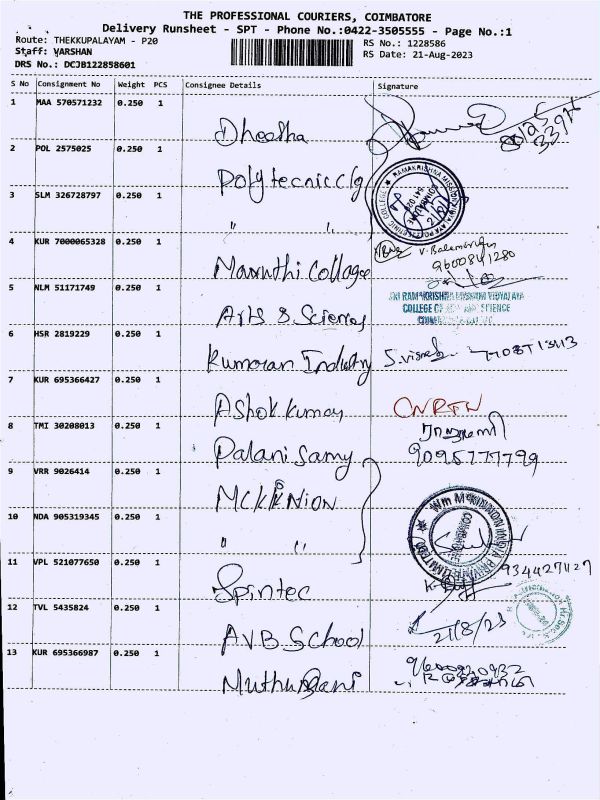 THE PROFESSIONAL COURIERS, COIMBATORE
Delivery Runsheet - SPT - Phone No.:0422-3505555 - Page No.:1
Route: THEKKUPALAYAM - P20
RS No.: 1228586
Staff: VARSHAN
RS Date: 21-Aug-2023
DRS No.: DCJB122858601
S No Consignment No Weight PCS Consignee Details Signature
1 MAA 570571232 0.250 1 Dheetha
2 POL 2575025 0.250 1 Polytecnic clg
3 SLM 326728797 0.250 1 " "
4 KUR 7000065328 0.250 1 Maruthi Collage V. Balamurugan
9600841280
5 NLM 51171749 0.250 1 Arts & Sciences
SRI RAMAKRISHNA MISSION VIDYALAYA
COLLEGE OF ARTS AND SCIENCE
6 HSR 2819229 0.250 1 Kumaran Industry
7 KUR 695366427 0.250 1 Ashok kumar
8 TMI 30208013 0.250 1 Palani Samy 9095777799
9 VRR 9026414 0.250 1 MCKINNION
10 NDA 905319345 0.250 1 " "
11 VPL 521077650 0.250 1 Spintec
12 TVL 5435824 0.250 1 AVB School 21/8/23
13 KUR 695366987 0.250 1 Muthu Rani